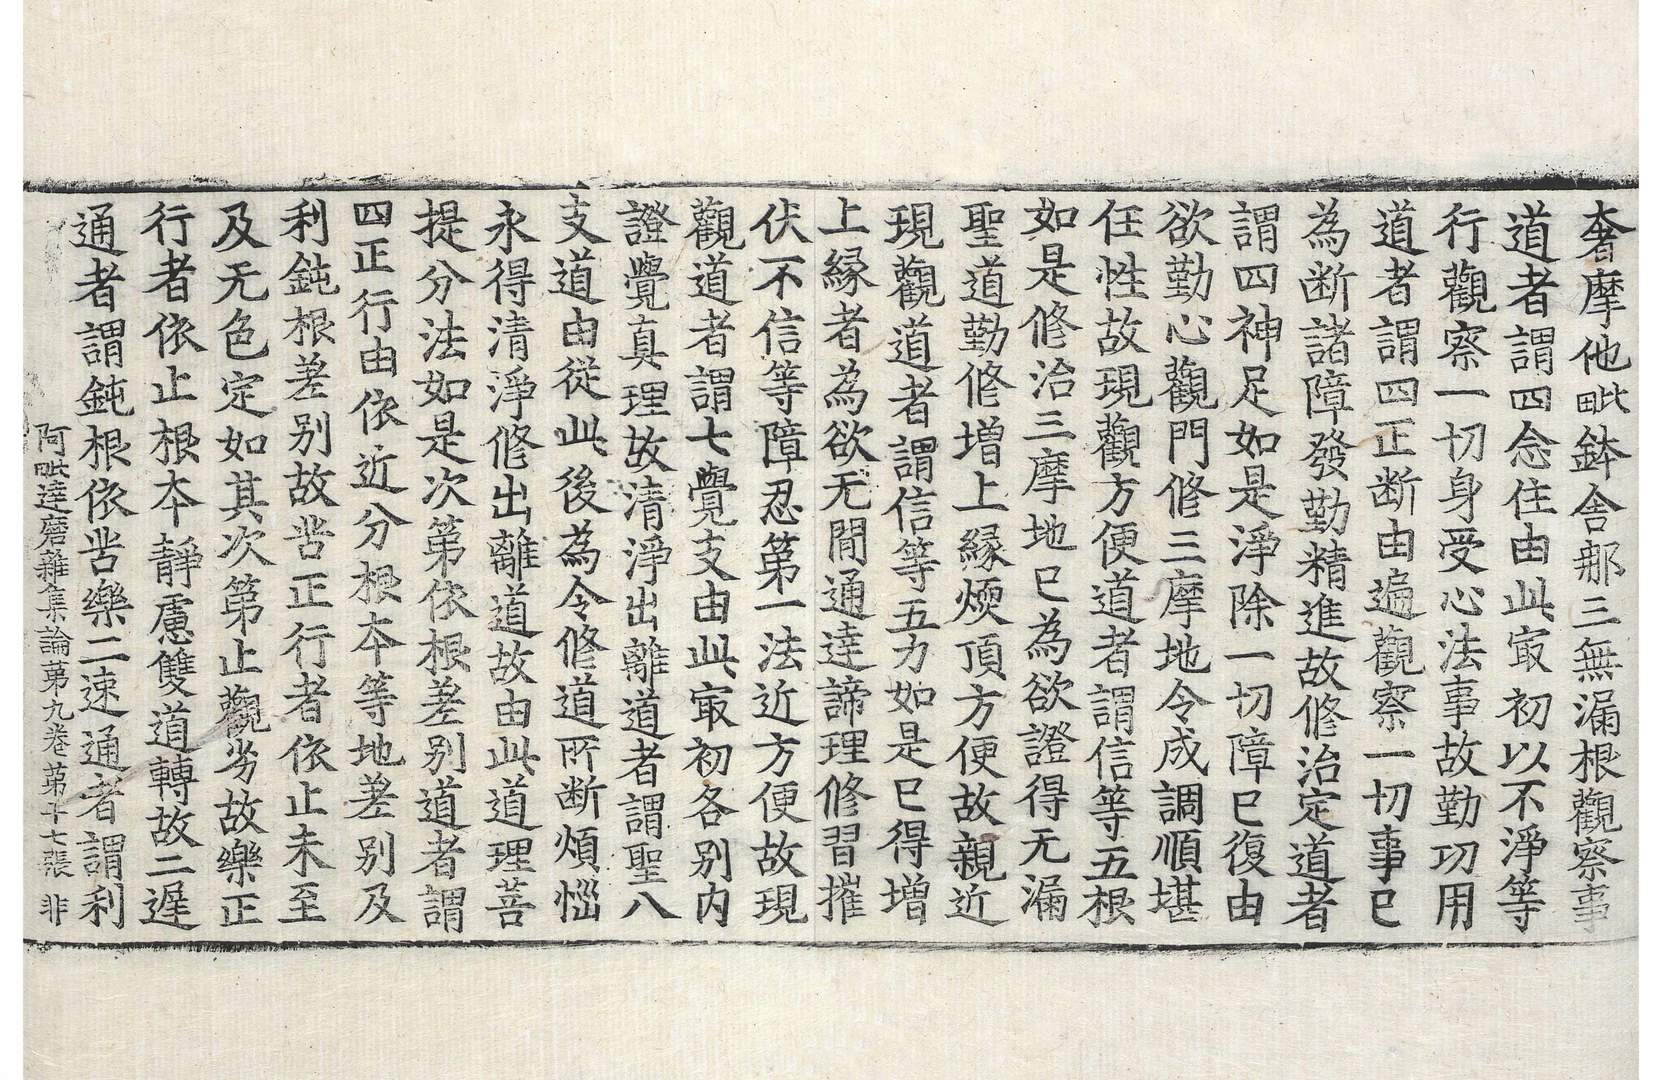 奢摩他毗鉢舍那三無漏根觀察事
道者謂四念住由此冣初以不淨等
行觀察一切身受心法事故勤功用
道者謂四正断由遍觀察一切事已
為断諸障發勤精進故修治定道者
謂四神足如是淨除一切障已復由
欲勤心觀門修三摩地令成調順堪
任性故現觀方便道者謂信等五根
如是修治三摩地已為欲證得无漏
聖道勤修增上縁煗頂方便故親近
現觀道者謂信等五力如是已得增
上縁者為欲无間通達諦理修習摧
伏不信等障忍第一法近方便故現
觀道者謂七覺支由此冣初各別内
證覺真理故清淨出離道者謂聖八
支道由從此後為令修道所断煩惱
永得清淨修出離道故由此道理菩
提分法如是次第依根差别道者謂
四正行由依近分根本等地差别及
利鈍根差别故苦正行者依止未至
及无色定如其次第止觀劣故樂正
行者依止根本靜慮雙道轉故二遲
通者謂鈍根依苦樂二速通者謂利
阿毗達磨雜集論第九卷第十七張 非